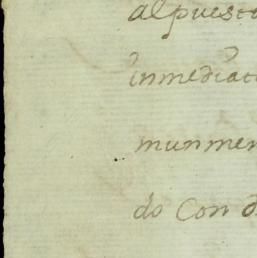 al puesto
inmediat
munmen
do Con d